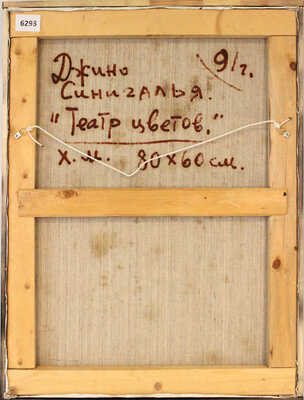 6293
Джино 91г.
Синигалья.
"Театр цветов."
х.м. 80х60см.